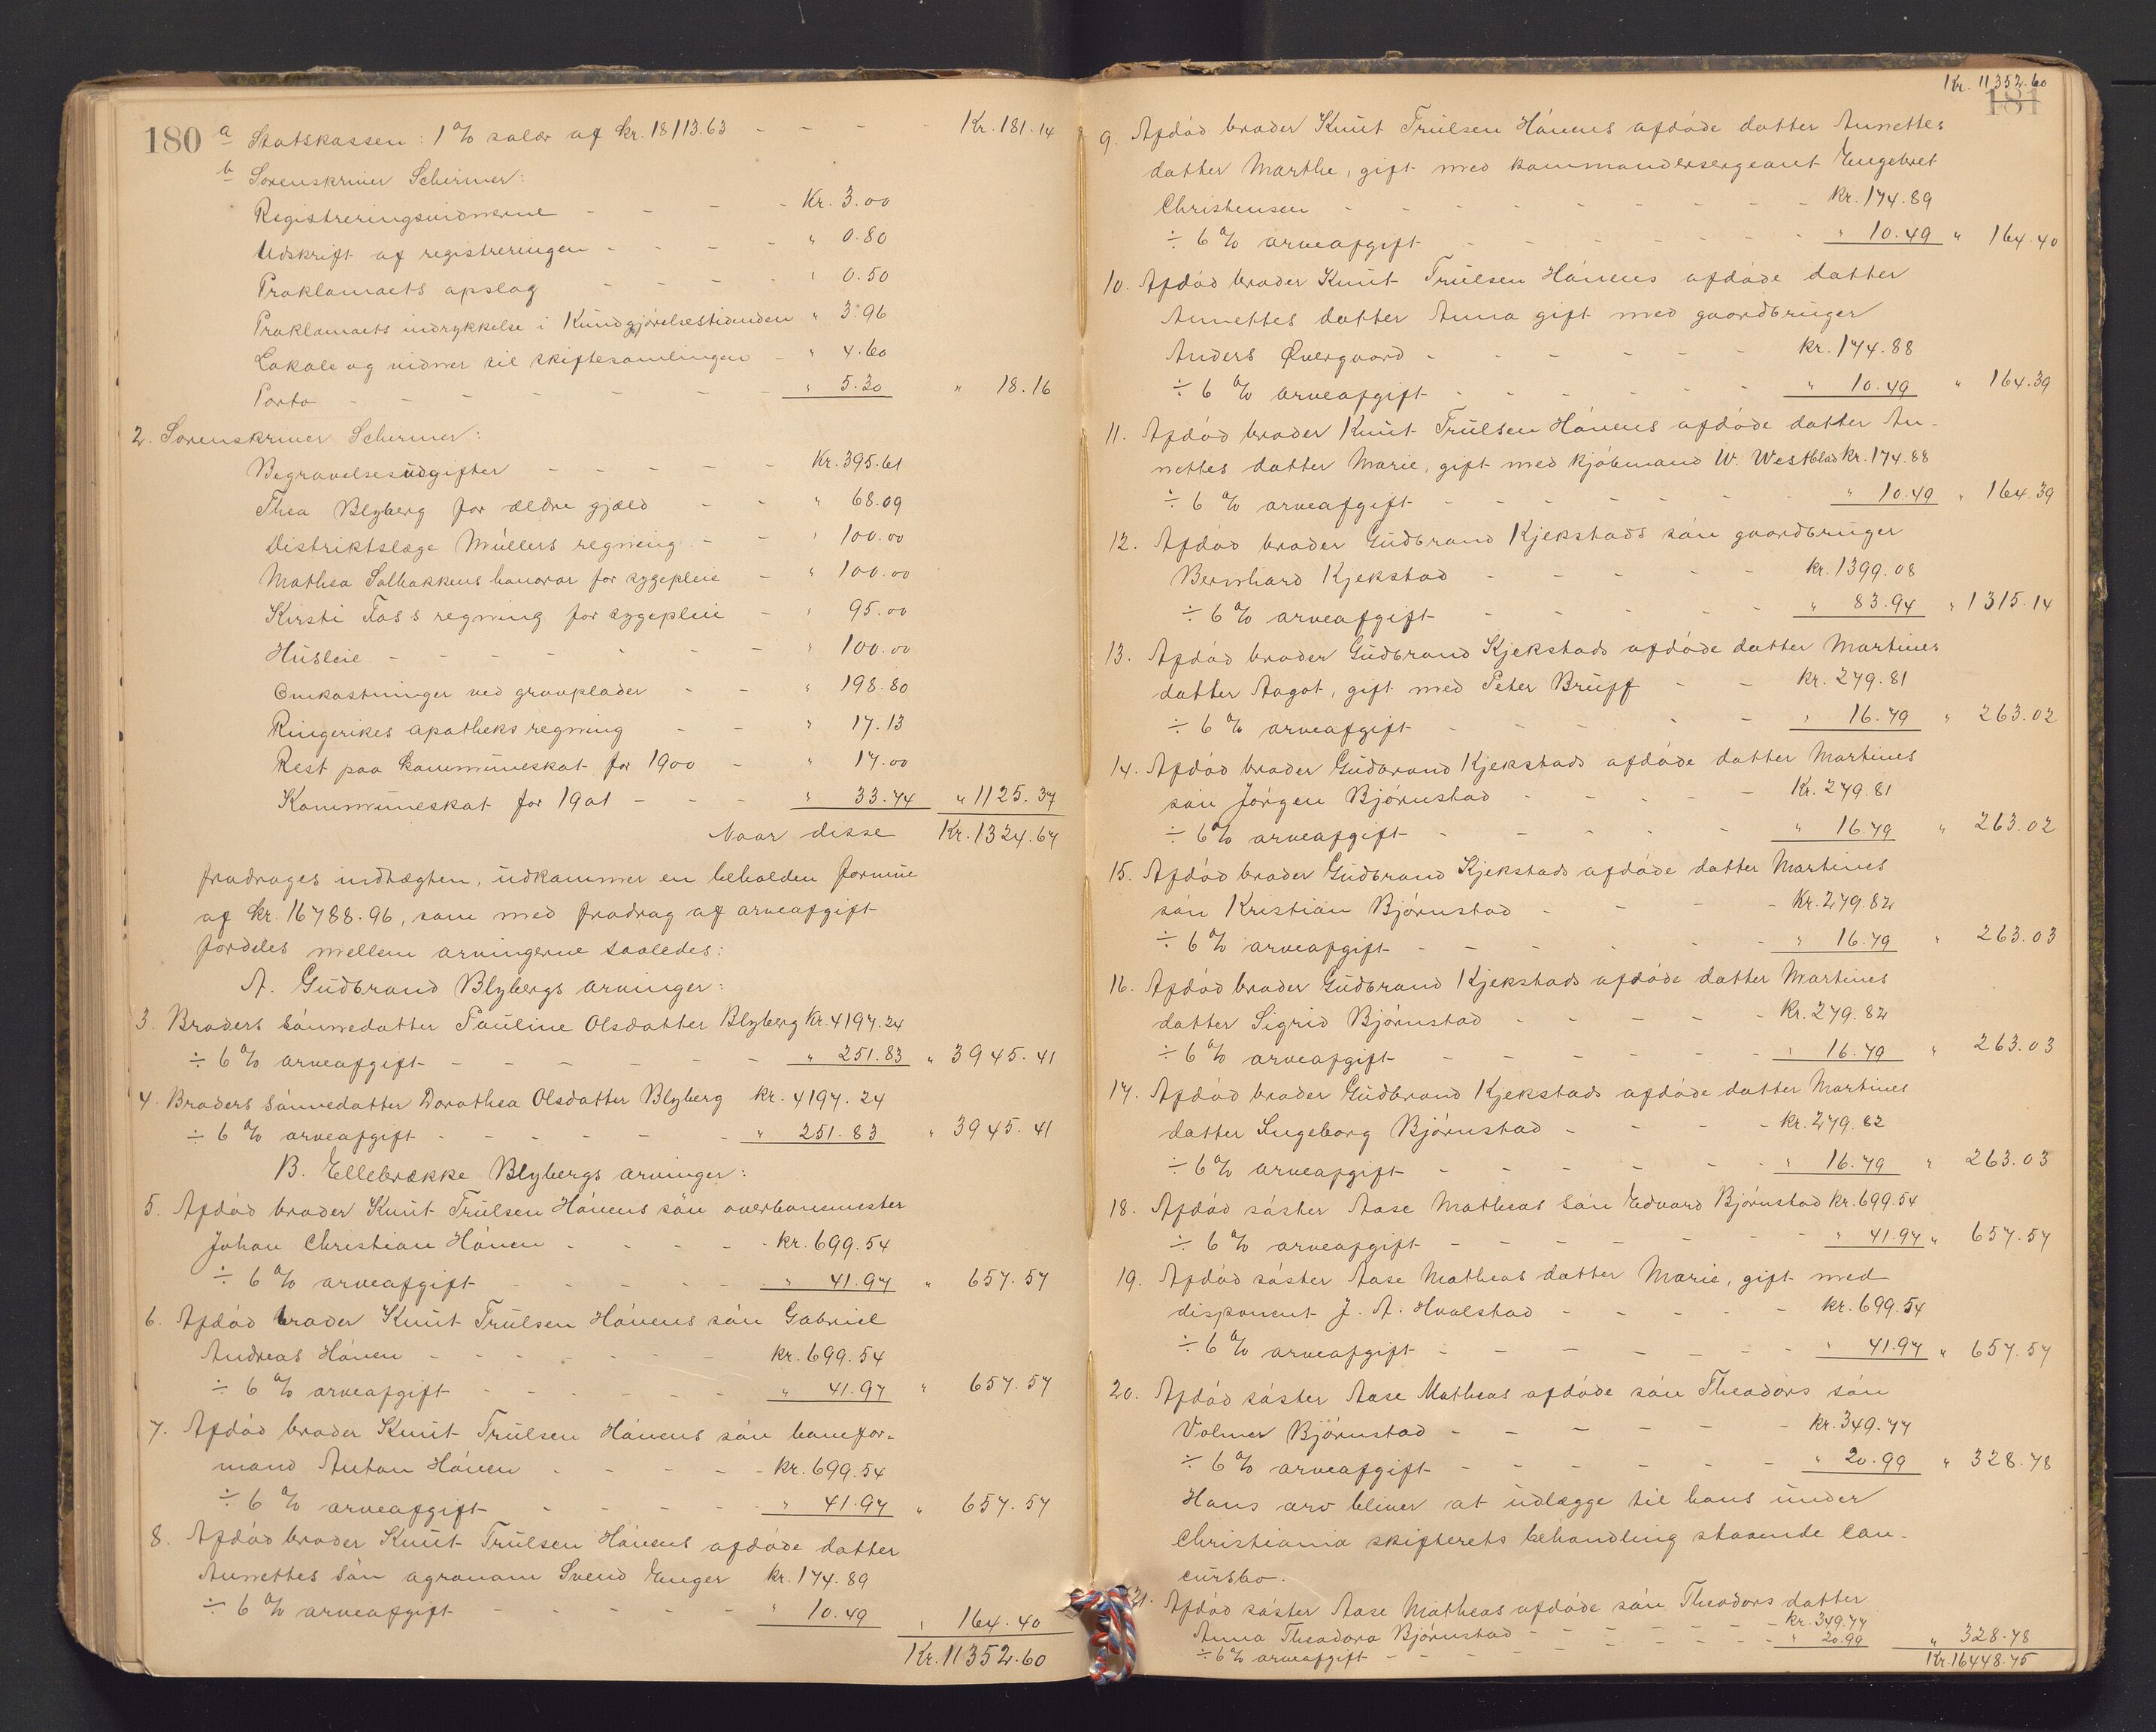 180 a Statskassen: 1 % salær af kr. 18113.63 - - - - Kr. 181.14
b Sorenskriver Schirmer:
Registreringsvidnerne - - - - Kr. 3.00
Udskrift af registreringen - - - - " 0.80
Proklamaets opslag - - - - " 0.50
Proklamaets indrykkelse i Kundgjørelsestidenden " 3.96
Lokale og vidner til skiftesamlingen - " 4.60
Porto - - - - - - - " 5.30 " 18.16
2. Sorenskriver Schirmer:
Begravelsesudgifter - - - - - Kr. 395.61
Thea Blyberg for ældre gjæld - - " 68.09
Distriktslæge Müllers regning - - " 100.00
Mathea Solbakkens honorar for sygepleie - " 100.00
Kirsti Foss regning for sygepleie - " 95.00
Husleie - - - - - - - " 100.00
Omkostninger ved gravplader - - " 198.80
Ringerikes apotheks regning - - " 17.13
Rest paa kommuneskat for 1900 - " 17.00
Kommuneskat for 1901 - - - " 33.74 " 1125.37
Naar disse Kr. 1324.67
fradrages indtægten, udkommer en beholden formue
af kr. 16788.96, som med fradrag af arveafgift
fordeles mellem arvingerne saaledes:
A. Gudbrand Blybergs arvinger:
3. Broders sønnedatter Pauline Olsdatter Blyberg Kr. 4197.24
÷ 6 % arveafgift - - - - - - " 251.83 " 3945.41
4. Broders sønnedatter Dorothea Olsdatter Blyberg kr. 4197.24
÷ 6 % arveafgift - - - - - - " 251.83 " 3945.41
B. Ellebrække Blybergs arvinger:
5. Afdød broder Knut Trulsen Hønens søn overbanemester
Johan Christian Hønen - - - - - kr. 699.54
÷ 6 % arveafgift - - - - - " 41.97 " 657.57
6. Afdød broder Knut Trulsen Hønens søn Gabriel
Andreas Hønen - - - - - - kr. 699.54
÷ 6 % arveafgift - - - - - - " 41.97 " 657.57
7. Afdød broder Knut Trulsen Hønens søn banefor-
mand Anton Hønen - - - - - kr. 699.54
÷ 6 % arveafgift - - - - - " 41.97 " 657.57
8. Afdød broder Knut Trulsen Hønens afdøde datter
Annettes søn agronom Svend Enger kr. 174.89
÷ 6 % arveafgift - - - - - " 10.49 " 164.40
Kr. 11352.60
Kr. 11352.60
181
9. Afdød broder Knut Trulsen Hønens afdøde datter Annettes
datter Marthe, gift med kommandersergeant Engebret
Christensen - - - - - - - kr. 174.89
÷ 6 % arveafgift - - - - - - - " 10.49 " 164.40
10. Afdød broder Knut Trulsen Hønens afdøde datter
Annettes datter Anna gift med gaardbruger
Anders Øvergaard - - - - - - kr. 174.88
÷ 6 % arveafgift - - - - - - " 10.49 " 164.39
11. Afdød broder Knut Trulsen Hønens afdøde datter An-
nettes datter Marie, gift med kjøbmand W. Westblad kr. 174.88
÷ 6 % arveafgift - - - - - - - " 10.49 " 164.39
12. Afdød broder Gudbrand Kjekstads søn gaardbruger
Bernhard Kjekstad - - - - - kr. 1399.08
÷ 6 % arveafgift - - - - - - " 83.94 " 1315.14
13. Afdød broder Gudbrand Kjekstads afdøde datter Martines
datter Aagot, gift med Peter Bruff - - kr. 279.81
÷ 6 % arveafgift - - - - - " 16.79 " 263.02
14. Afdød broder Gudbrand Kjekstads afdøde datter Martines
søn Jørgen Bjørnstad - - - - - Kr. 279.81
÷ 6 % arveafgift - - - - - " 16.79 " 263.02
15. Afdød broder Gudbrand Kjekstads afdøde datter Martines
søn Kristian Bjørnstad - - - - kr. 279.82
÷ 6 % arveafgift - - - - - - - " 16.79 " 263.03
16. Afdød broder Gudbrand Kjekstads afdøde datter Martines
datter Sigrid Bjørnstad - - - - - kr. 279.82
÷ 6 % arveafgift - - - - - - " 16.79 " 263.03
17. Afdød broder Gudbrand Kjekstads afdøde datter Martines
datter Ingeborg Bjørnstad - - - - kr. 279.82
÷ 6 % arveafgift - - - - - - " 16.79 " 263.03
18. Afdød søster Aase Matheas søn Edvard Bjørnstad kr. 699.54
÷ 6 % arveafgift - - - - - - - " 41.97 " 657.57
19. Afdød søster Aase Matheas datter Marie, gift med
disponent J. A. Hvalstad - - - - - kr. 699.54
÷ 6 % arveafgift - - - - - - - " 41.97 " 657.57
20. Afdød søster Aase Matheas afdøde søn Theodors søn
Volmer Bjørnstad - - - - - - kr. 349.77
÷ 6 % arveafgift - - - - - - - " 20.99 " 328.78
Hans arv bliver at udlægge til hans under
Christiania skifterets behandling staaende con-
cursbo.
21. Afdød søster Aase Matheas afdøde søn Theodors datter
Anna Theodora Bjørnstad - - - - - - kr. 349.77
÷ 6 % arveafgift - - - - " 20.99 " 328.78
Kr. 16448.75